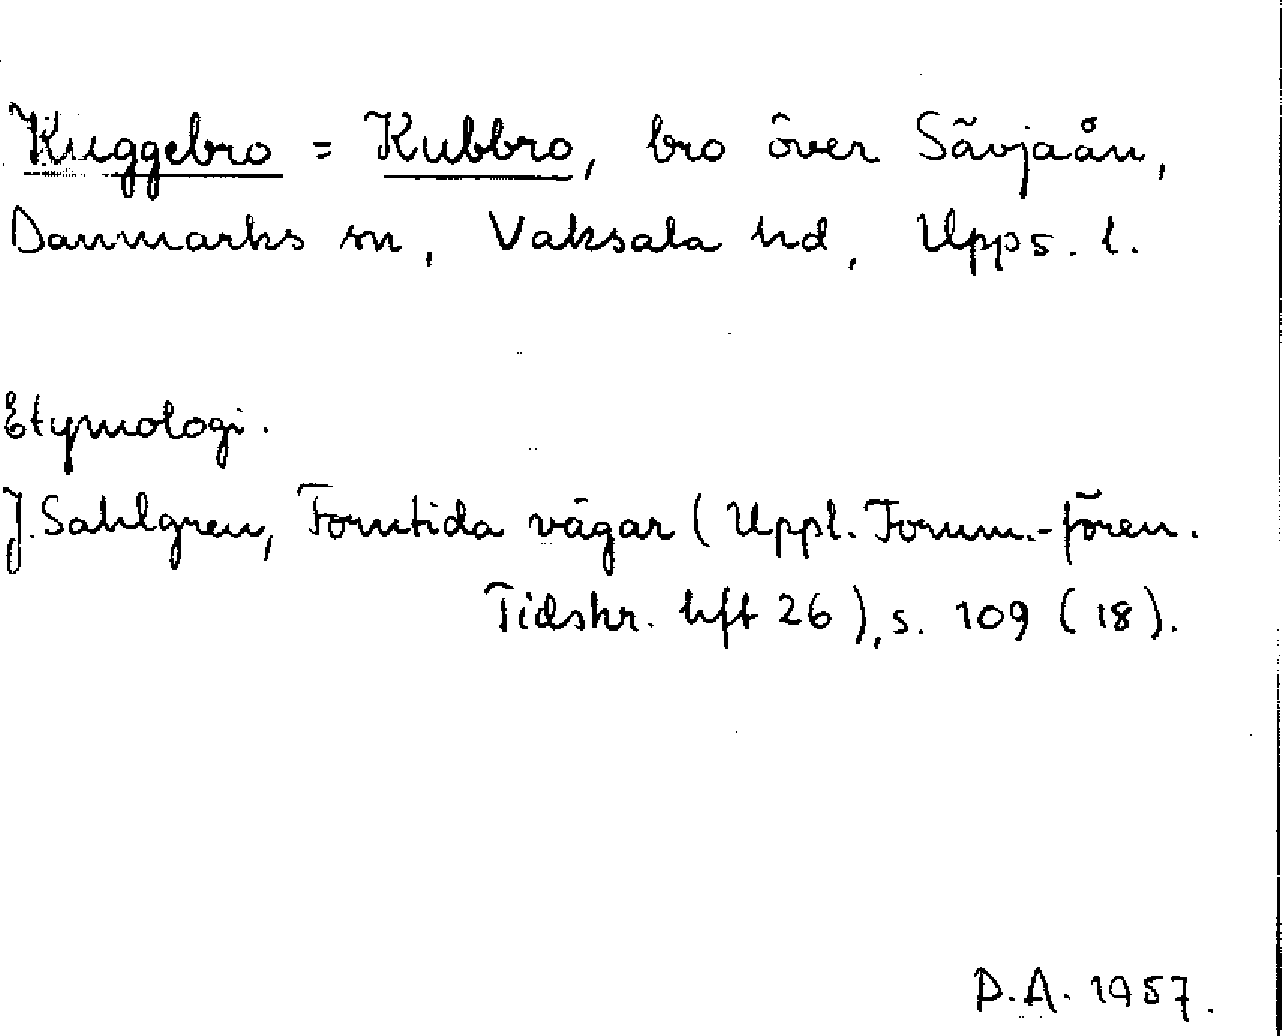 Kuggebro = Kubbro, bro över Sävjaån,
Danmarks sn, Vaksala hd, Upps. l.
Etymologi.
J. Sahlgren, Forntida vägar (Uppl. Fornm.-fören.
Tidskr. hft 26), s. 109 (18).
D.A. 1957.